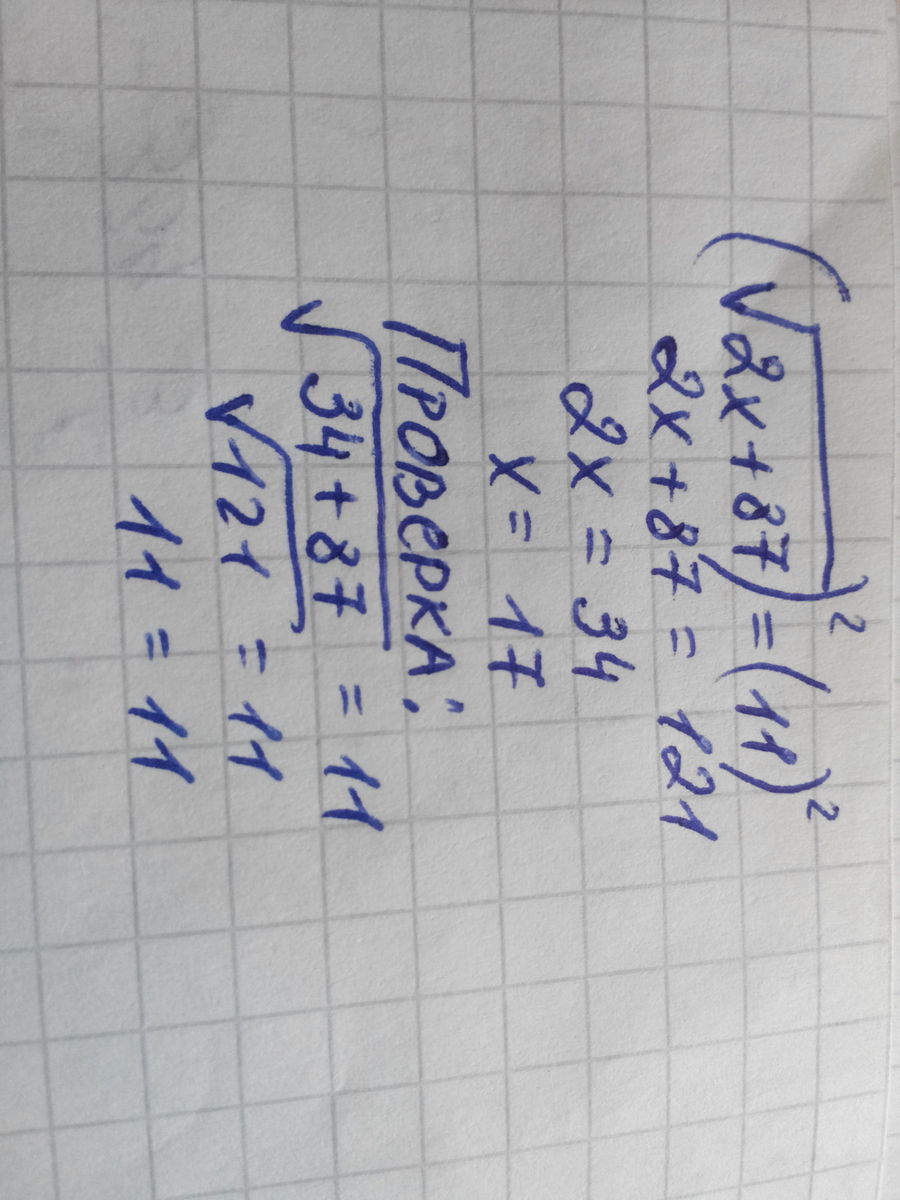 (√2x+87)² = (11)²
2x+87 = 121
2x = 34
x = 17
Проверка:
√34+87 = 11
√121 = 11
11 = 11